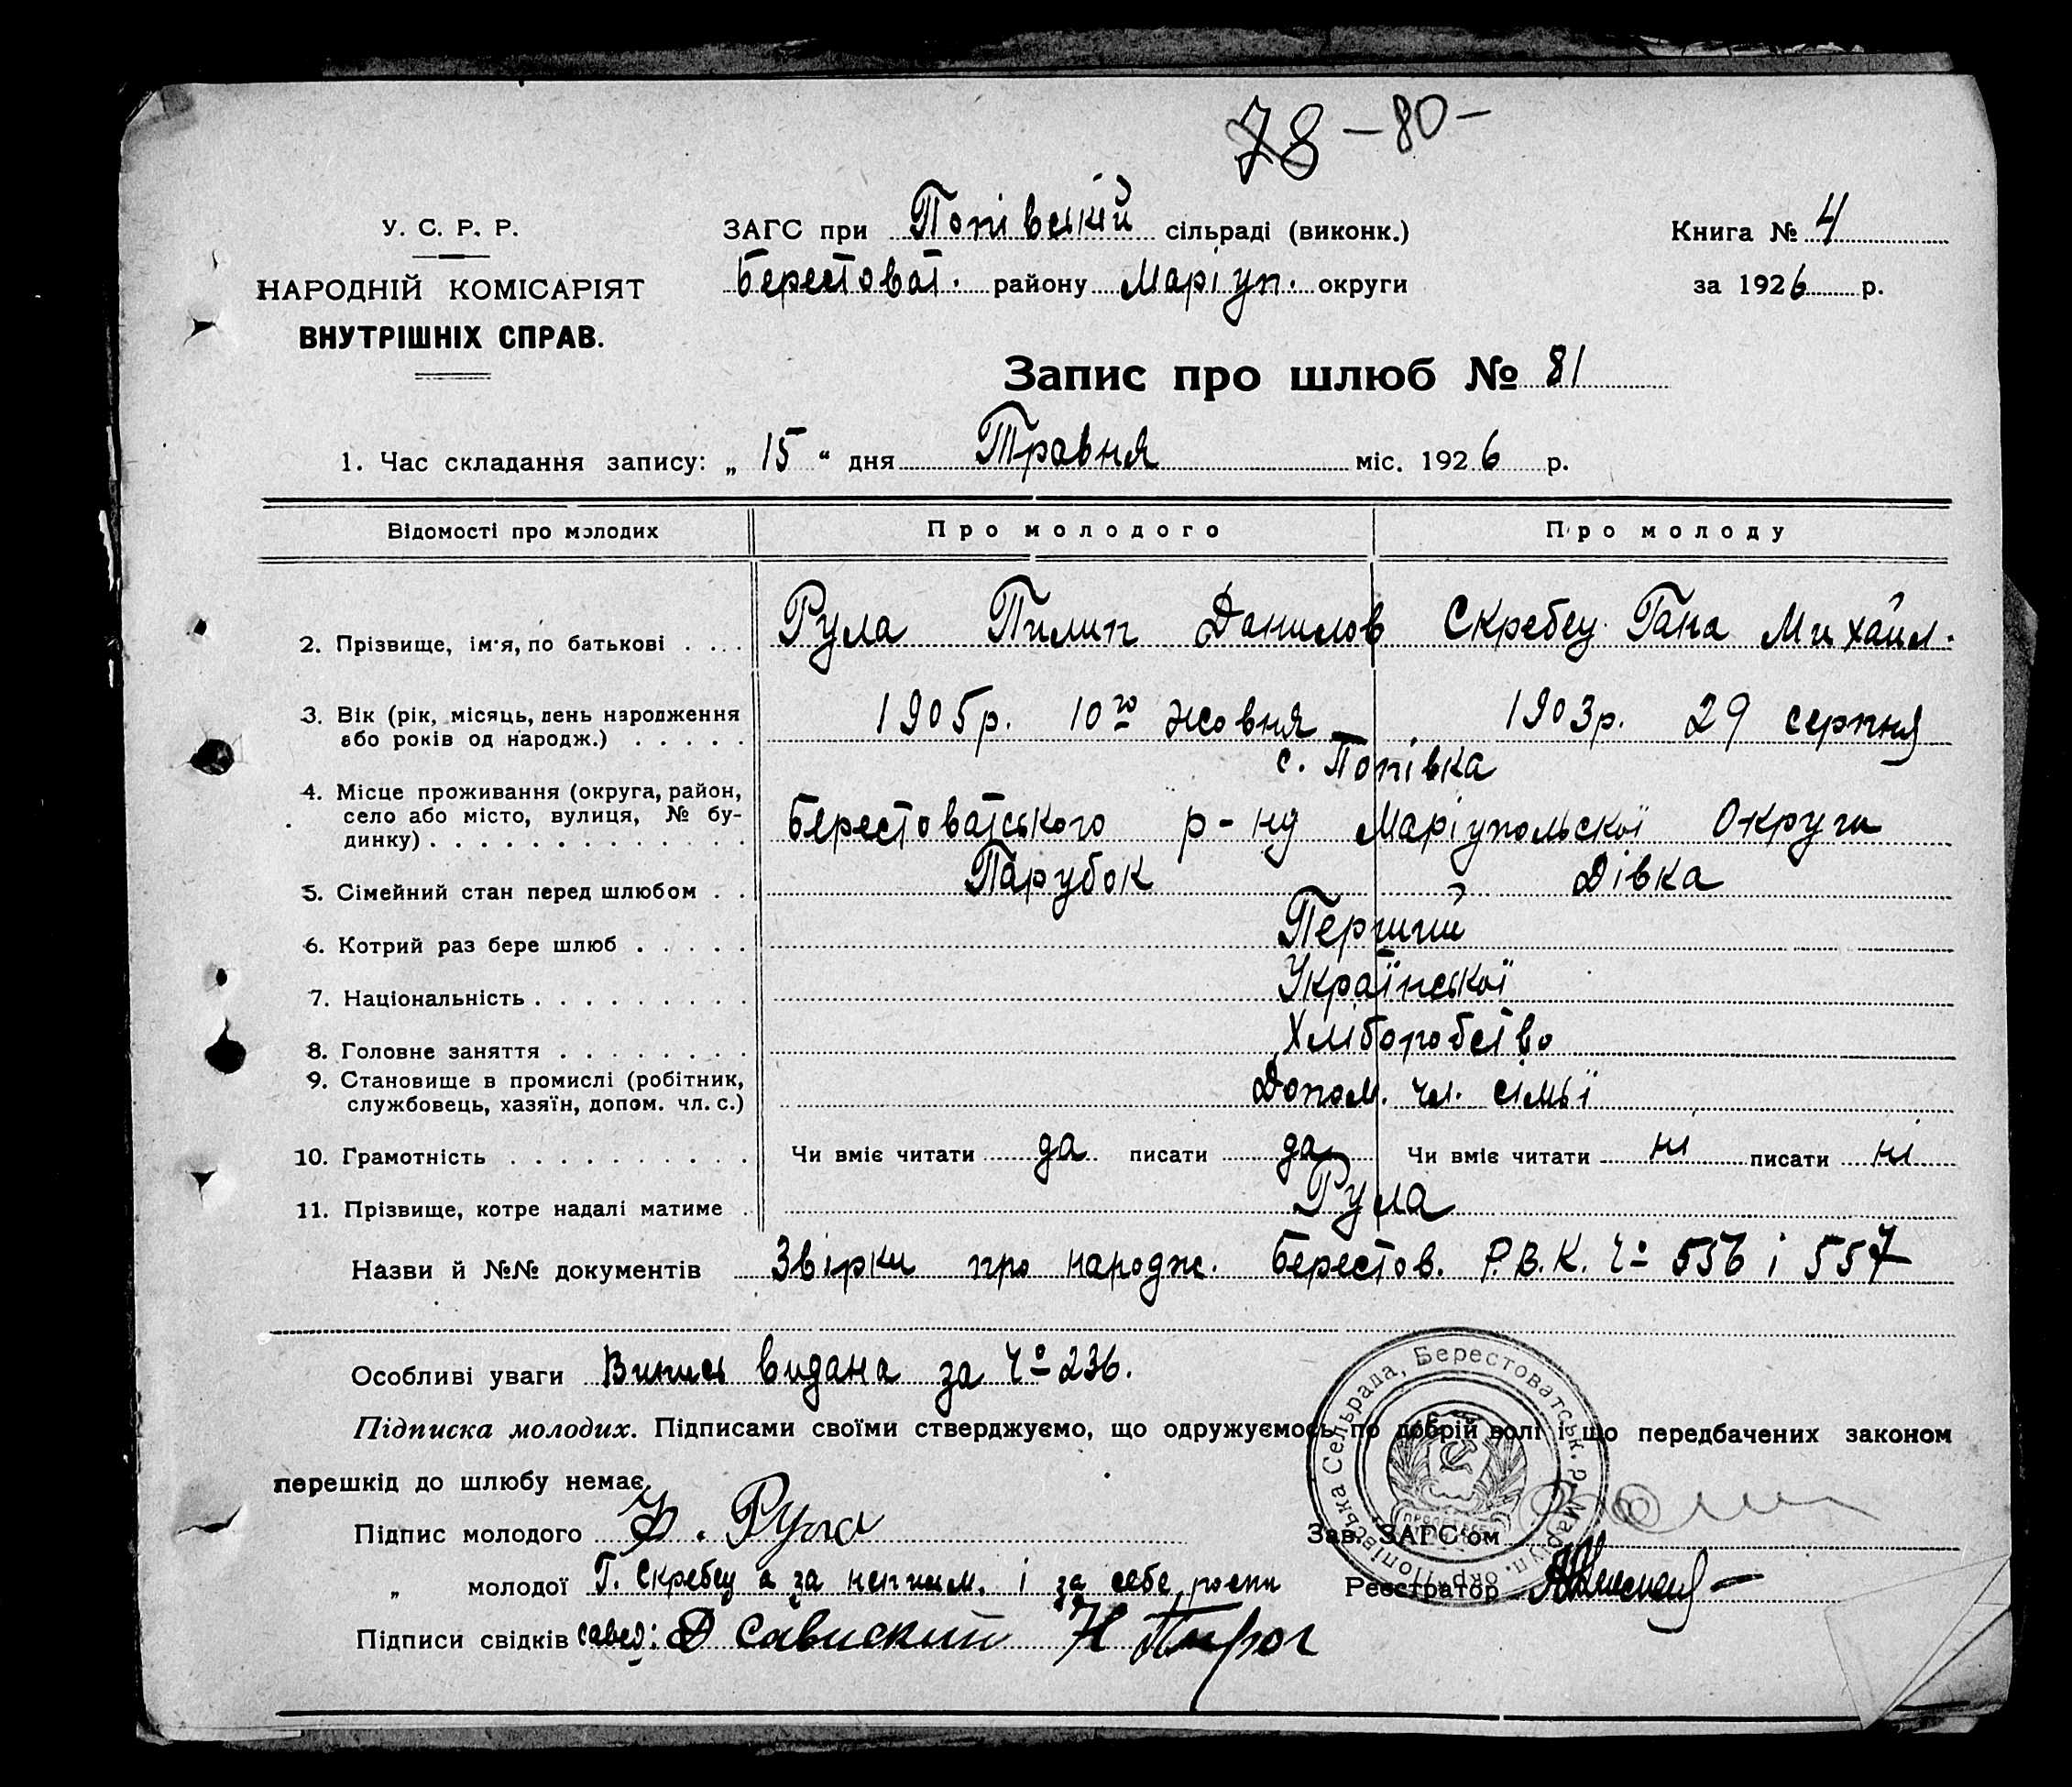 78 – 80 –
У. С. Р. Р.
НАРОДНІЙ КОМІСАРІЯТ
ВНУТРІШНІХ СПРАВ.
ЗАГС при Попівській сільраді (виконк.)
Берестоват. району Маріуп. округи
Книга № 4
за 1926 р.
Запис про шлюб № 81
1. Час складання запису: „ 15 “ дня Травня міс. 1926 р.
Відомості про молодих Про молодого Про молоду
2. Прізвище, ім'я, по батькові . . . . Рула Пилип Данилов Скребец Гана Михайл.
3. Вік (рік, місяць, день народження
або років од народж.) . . . . . 1905р. 10го жовня 1903р. 29 серпня
с. Попівка
4. Місце проживання (округа, район,
село або місто, вулиця, № бу-
динку) . . . . . . . . . . . . . Берестоватського р-ну Маріупольскої Округи
5. Сімейний стан перед шлюбом . . Парубок Дівка
6. Котрий раз бере шлюб . . . . . Перший
7. Національність . . . . . . . . . Української
8. Головне заняття . . . . . . . . Хліборобство
9. Становище в промислі (робітник,
службовець, хазяїн, допом. чл. с.) Допом. чл. сімьї
10. Грамотність . . . . . . . . . . Чи вміє читати да писати да Чи вміє читати ні писати ні
11. Прізвище, котре надалі матиме . Рула
Назви й №№ документів Звірки про народж. Берестов. Р.В.К. Чо 556 і 557
Особливі уваги Випись видана за Чо 236.
Підписка молодих. Підписами своїми стверджуємо, що одружуємось по добрій волі і що передбачених законом
перешкід до шлюбу немає.
Підпис молодого Ф. Рула
„ молодої Г. Скребец а за неписм. і за себе роспи
Підписи свідків савед: Д Савиский Н Пирог
Зав. ЗАГС'ом
Реєстратор
Попівська Сельрада, Берестоватськ. р. Маріуп. окр.